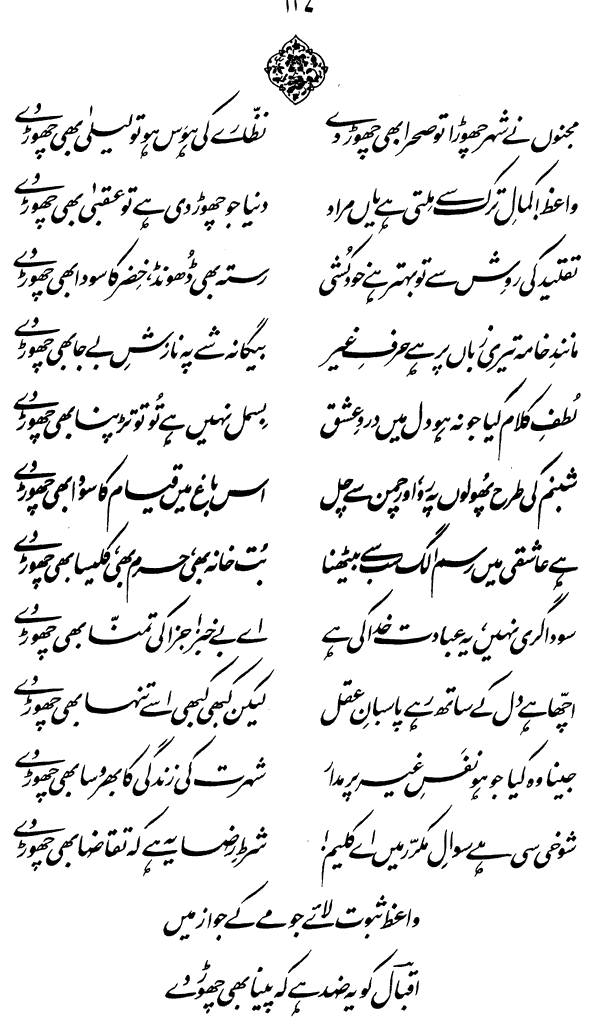 ۱۱۷
مجنوں نے شہر چھوڑا تو صحرا بھی چھوڑ دے نظّارے کی ہوَس ہو تو لیلیٰ بھی چھوڑ دے
واعظ! کمالِ ترک سے مِلتی ہے یاں مراد دنیا جو چھوڑ دی ہے تو عقبیٰ بھی چھوڑ دے
تقلید کی روِش سے تو بہتر ہے خودکُشی رستہ بھی ڈُھونڈ، خِضر کا سودا بھی چھوڑ دے
مانندِ خامہ تیری زباں پر ہے حرفِ غیر بیگانہ شے پہ نازشِ بے جا بھی چھوڑ دے
لُطفِ کلام کیا جو نہ ہو دل میں دردِ عشق بِسمل نہیں ہے تُو تو تڑپنا بھی چھوڑ دے
شبنم کی طرح پھُولوں پہ رو، اور چمن سے چل اس باغ میں قیام کا سودا بھی چھوڑ دے
ہے عاشقی میں رسم الگ سب سے بیٹھنا بُت خانہ بھی، حرم بھی، کلیسا بھی چھوڑ دے
سوداگری نہیں، یہ عبادت خدا کی ہے اے بے خبر! جزا کی تمنّا بھی چھوڑ دے
اچھّا ہے دل کے ساتھ رہے پاسبانِ عقل لیکن کبھی کبھی اسے تنہا بھی چھوڑ دے
جینا وہ کیا جو ہو نفَسِ غیر پر مدار شہرت کی زندگی کا بھروسا بھی چھوڑ دے
شوخی سی ہے سوالِ مکرّر میں اے کلیم! شرطِ رضا یہ ہے کہ تقاضا بھی چھوڑ دے
واعظ ثبوت لائے جو مے کے جواز میں
اقبالؔ کو یہ ضد ہے کہ پینا بھی چھوڑ دے